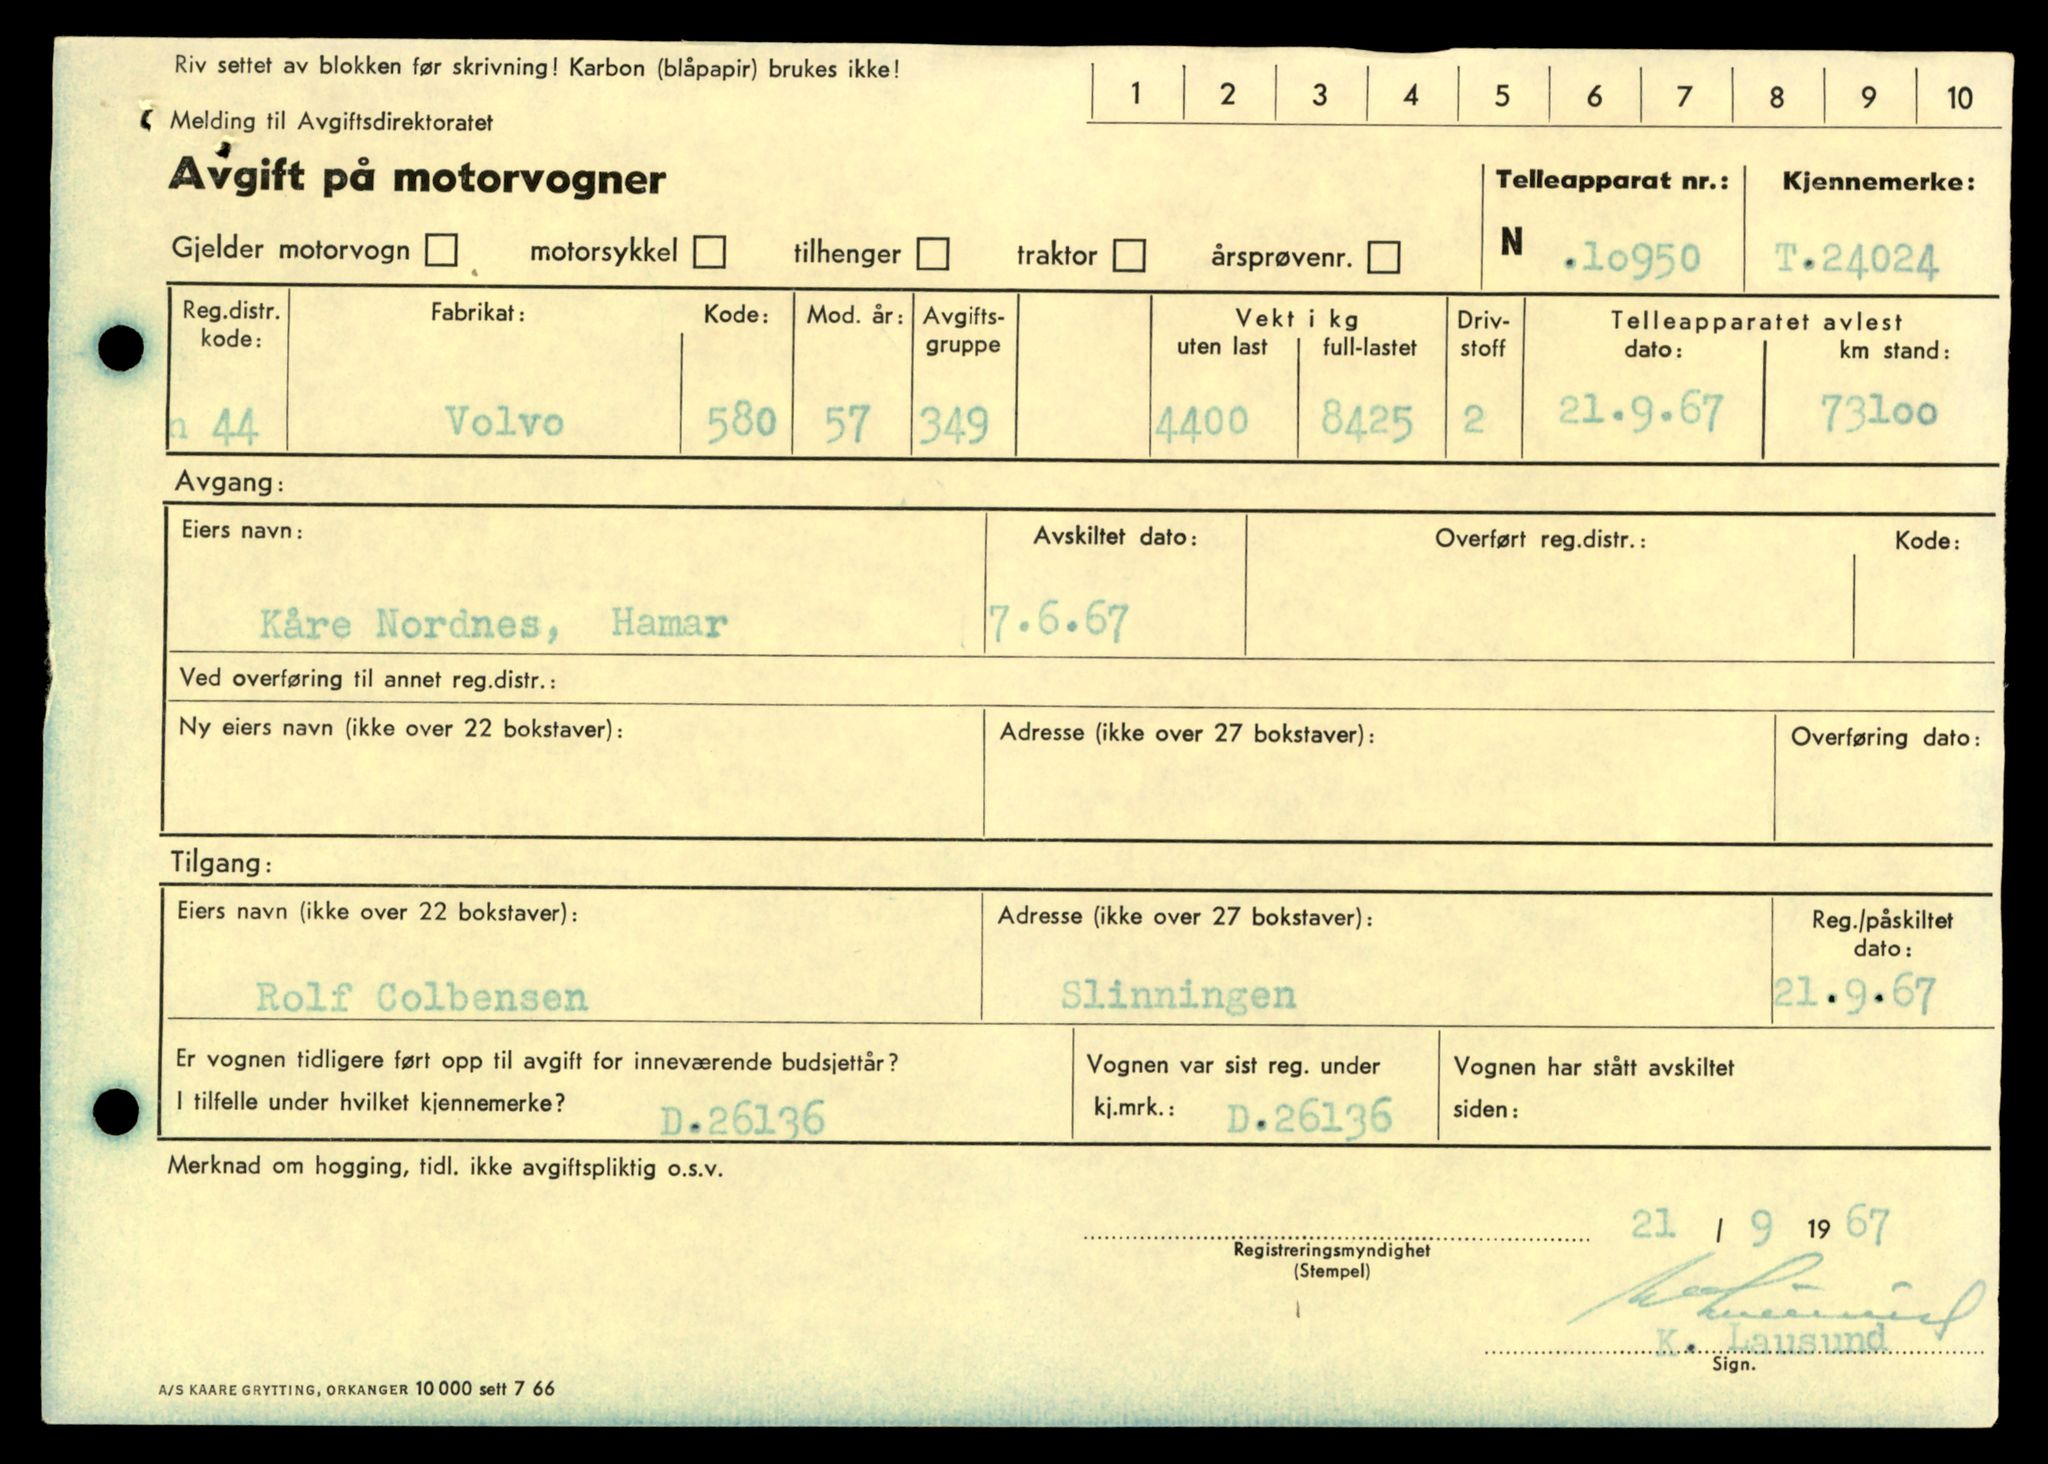 Riv settet av blokken før skrivning! Karbon (blåpapir) brukes ikke!
1 2 3 4 5 6 7 8 9 10
Melding til Avgiftsdirektoratet
Avgift på motorvogner
Telleapparat nr.: Kjennemerke:
Gjelder motorvogn motorsykkel tilhenger traktor årsprøvenr.
N .10950 T.24024
Reg.distr. kode: Fabrikat: Kode: Mod. år: Avgiftsgruppe Vekt i kg uten last full-lastet Drivstoff Telleapparatet avlest dato: km stand:
n 44 Volvo 580 57 349 4400 8425 2 21.9.67 73100
Avgang:
Eiers navn: Avskiltet dato: Overført reg.distr.: Kode:
Kåre Nordnes, Hamar 7.6.67
Ved overføring til annet reg.distr.:
Ny eiers navn (ikke over 22 bokstaver): Adresse (ikke over 27 bokstaver): Overføring dato:
Tilgang:
Eiers navn (ikke over 22 bokstaver): Adresse (ikke over 27 bokstaver): Reg./påskiltet dato:
Rolf Colbensen Slinningen 21.9.67
Er vognen tidligere ført opp til avgift for inneværende budsjettår? Vognen var sist reg. under Vognen har stått avskiltet
I tilfelle under hvilket kjennemerke? D.26136 kj.mrk.: D.26136 siden:
Merknad om hogging, tidl. ikke avgiftspliktig o.s.v.
21 / 9 1967
Registreringsmyndighet
(Stempel)
K. Lausund
Sign.
A/S KAARE GRYTTING, ORKANGER 10 000 sett 7 66